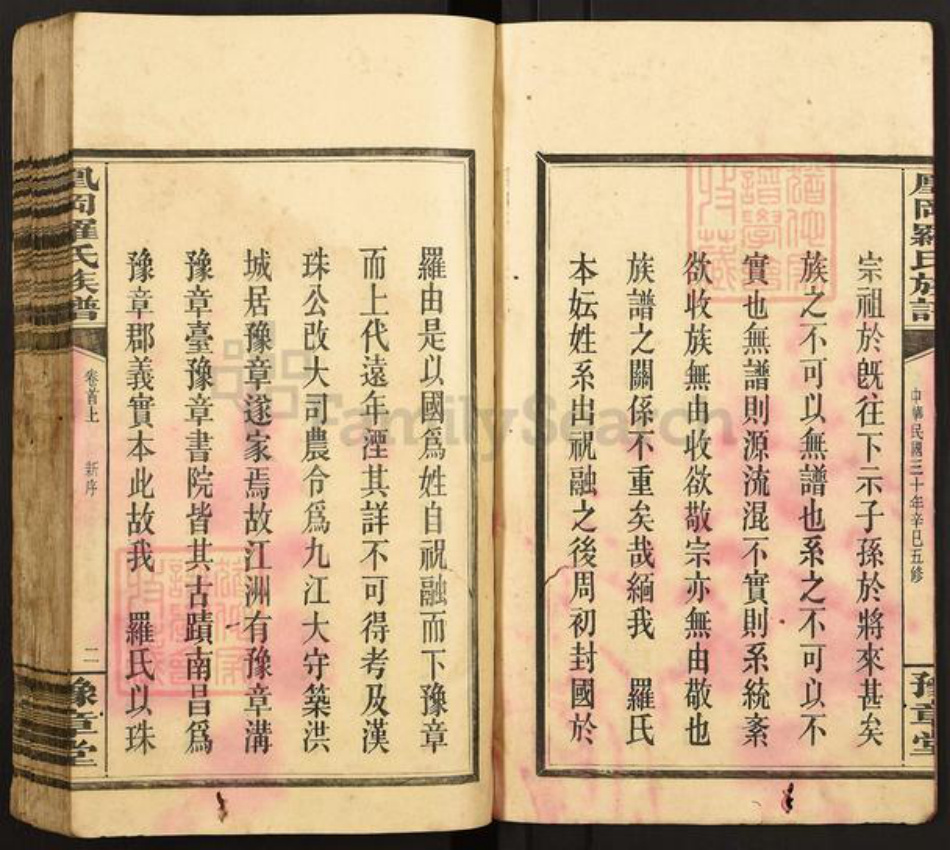 鳳岡羅氏族譜
中華民國三十年辛巳五修
豫章堂
宗祖於旣往下示子孫於將來甚矣
族之不可以無譜也系之不可以不
實也無譜則源流混不實則系統紊
欲收族無由收欲敬宗亦無由敬也
族譜之關係不重矣哉緬我 羅氏
本妘姓系出祝融之後周初封國於
羅由是以國爲姓自祝融而下豫章
而上代遠年湮其詳不可得考及漢
珠公改大司農令爲九江大守築洪
城居豫章遂家焉故江洲有豫章溝
豫章臺豫章書院皆其古蹟南昌爲
豫章郡義實本此故我 羅氏以珠
鳳岡羅氏族譜
卷首上 新序 二
豫章堂
FamilySearch